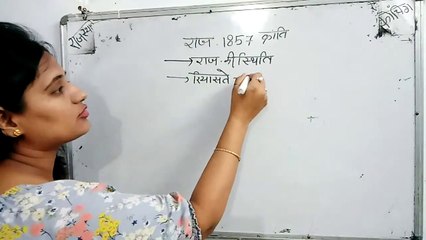 राजस्थान
कोचिंग
राज. 1857 क्रांति
→ राज. की स्थिति
→ रियासते